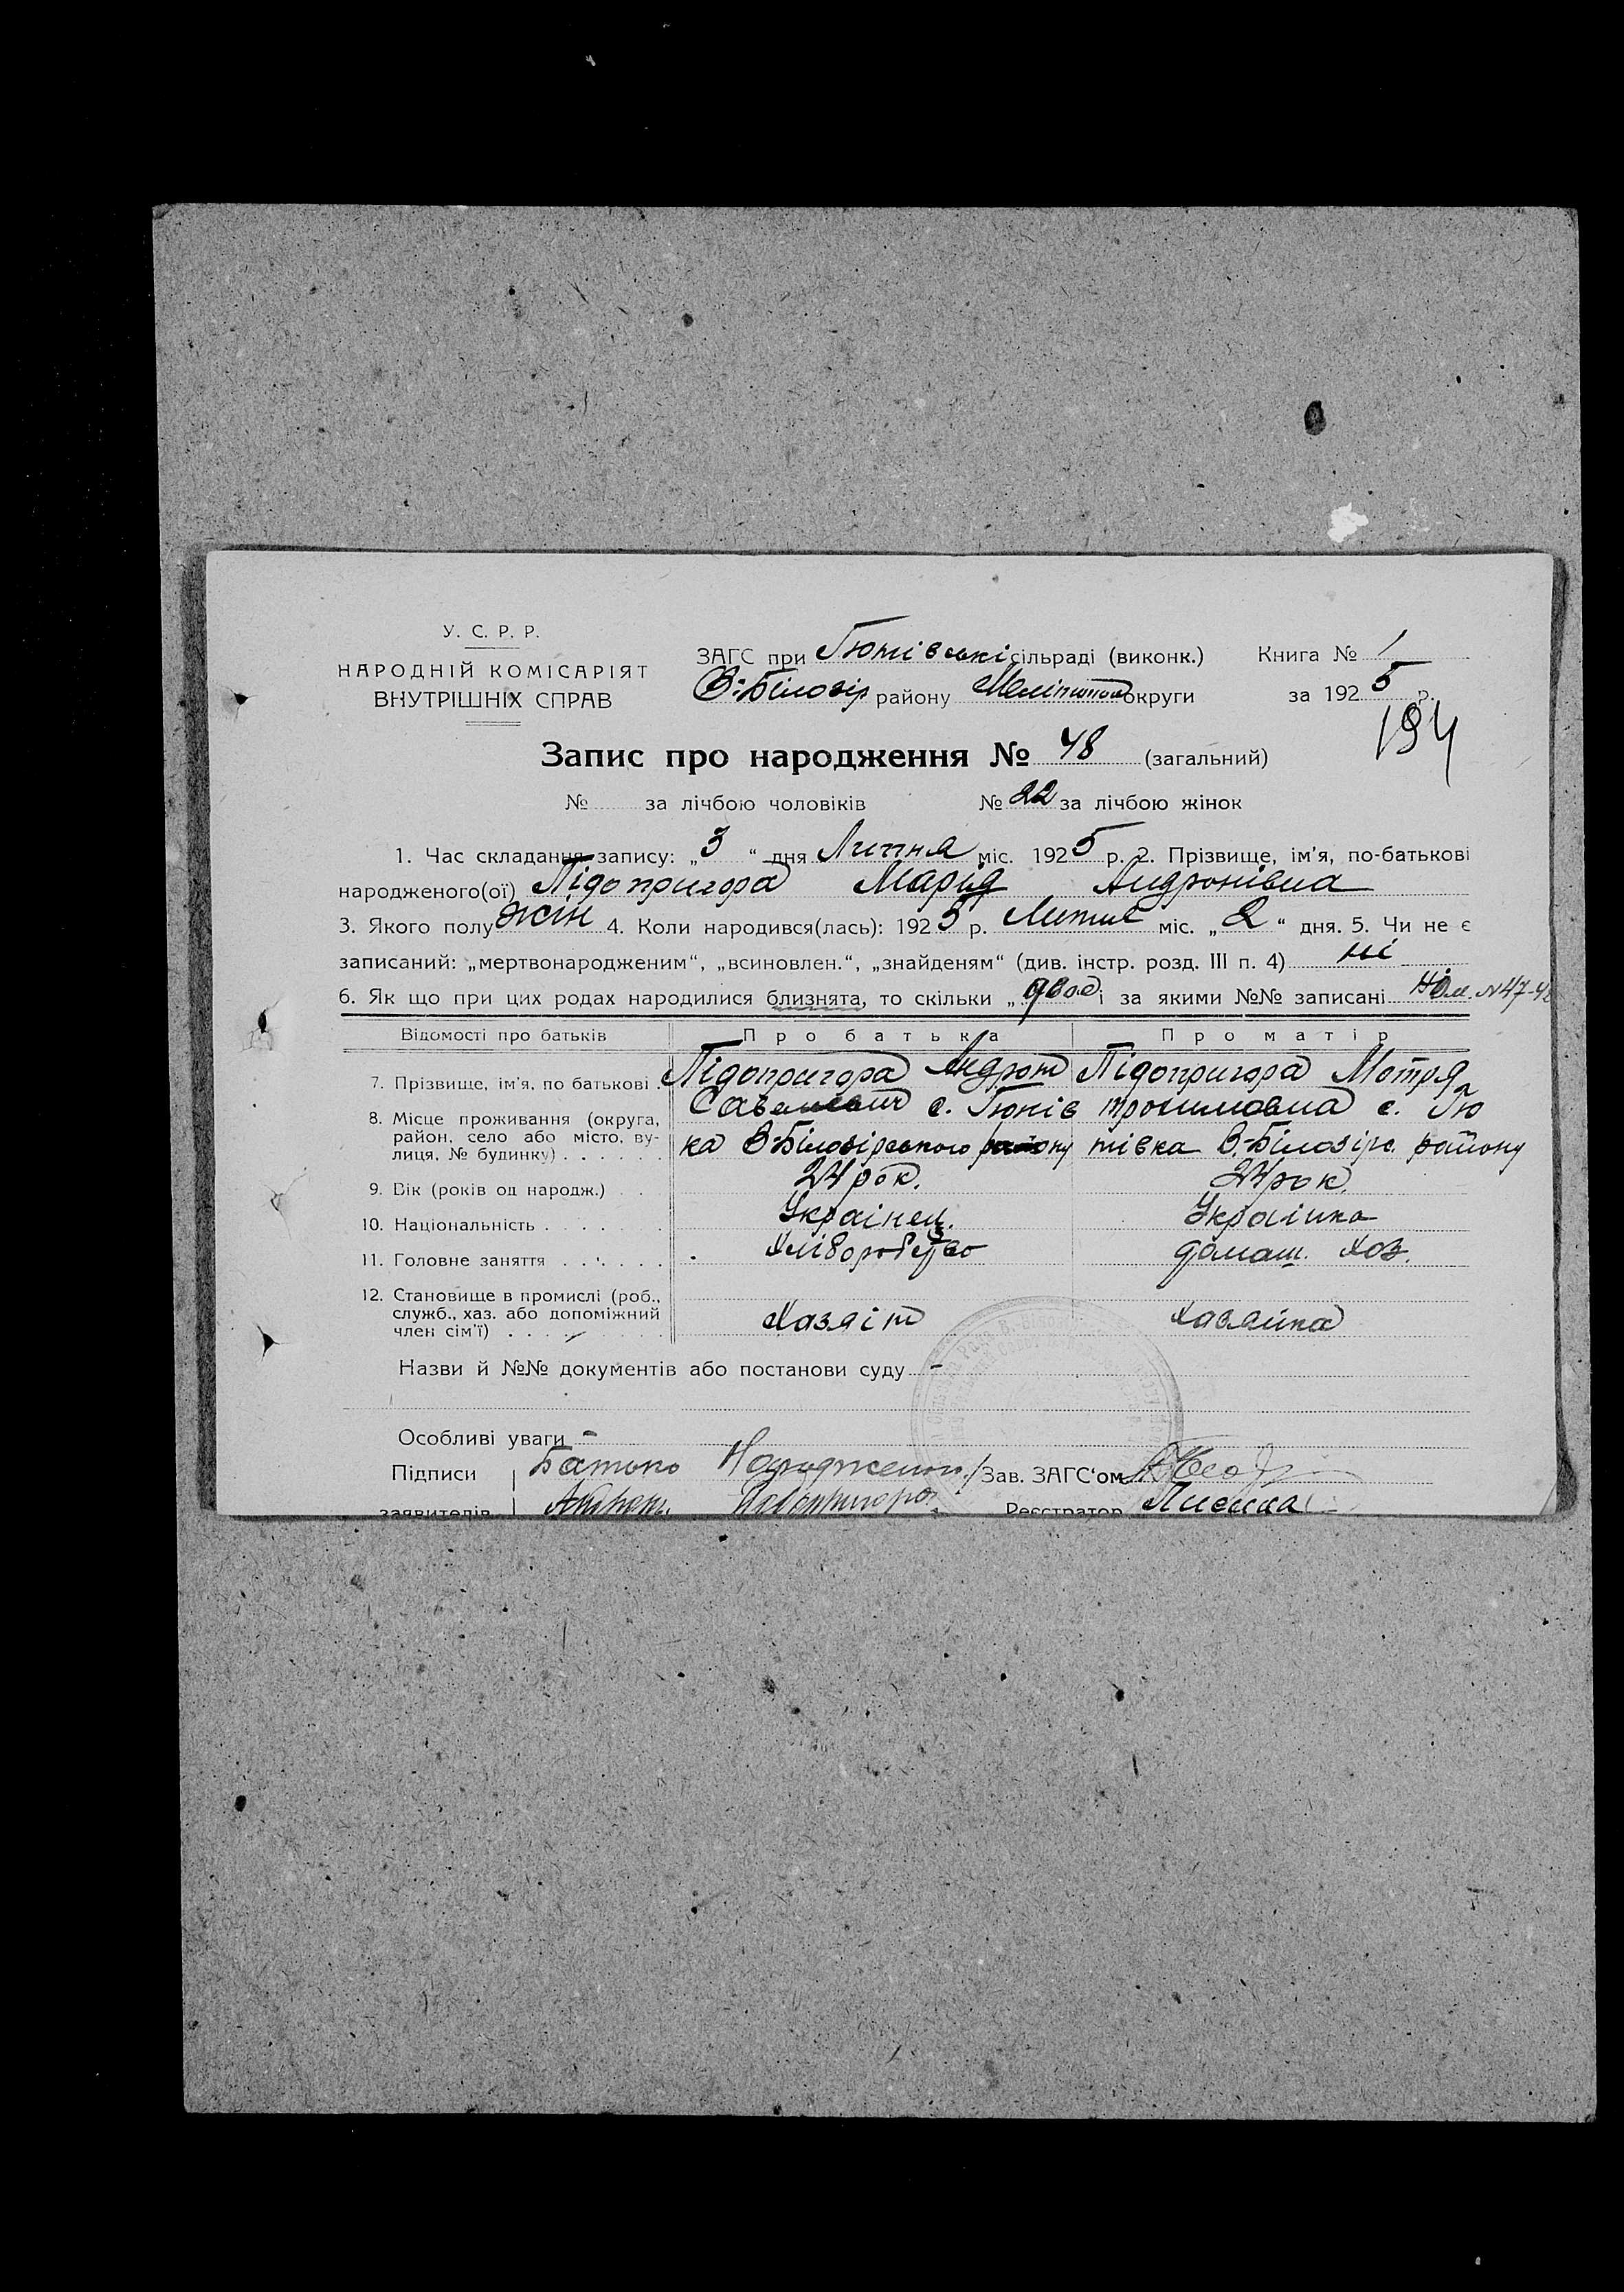 У. С. Р. Р.
НАРОДНІЙ КОМІСАРІЯТ
ВНУТРІШНІХ СПРАВ
ЗАГС при Гюнівські сільраді (виконк.) Книга № 1
В-Білозір району Меліпитол округи за 1925 р.
194
Запис про народження № 48 (загальний)
№ за лічбою чоловіків № 22 за лічбою жінок
1. Час складання запису: „3“ дня Липня міс. 1925 р. 2. Прізвище, ім'я, по-батькові
народженого(ої) Підопригора Марія Андронівна
3. Якого полу жін 4. Коли народився(лась): 1925 р. Липня міс. „2“ дня. 5. Чи не є
записаний: „мертвонародженим“, „всиновлен.“, „знайденям“ (див. інстр. розд. III п. 4) ні
6. Як що при цих родах народилися близнята, то скільки „двоє і за якими №№ записані №47-48
Відомості про батьків Про батька Про матір
7. Прізвище, ім'я, по батькові Підопригора Андрон Підопригора Мотря
8. Місце проживання (округа, район, село або місто, вулиця, № будинку) с. Гюнівка В-Білозірського району с. Гюнівка В.-Білозірс. району
9. Вік (років од народж.) 24 рок. 24 рок.
10. Національність Українец. Українка
11. Головне заняття Хліборобство домаш. хоз.
12. Становище в промислі (роб., служб., хаз. або допоміжний член сім'ї) Хазяін Хазяйка
Назви й №№ документів або постанови суду –
Особливі уваги –
Підписи Батько Зав. ЗАГС'ом
заявителів Підопригора Реєстратор